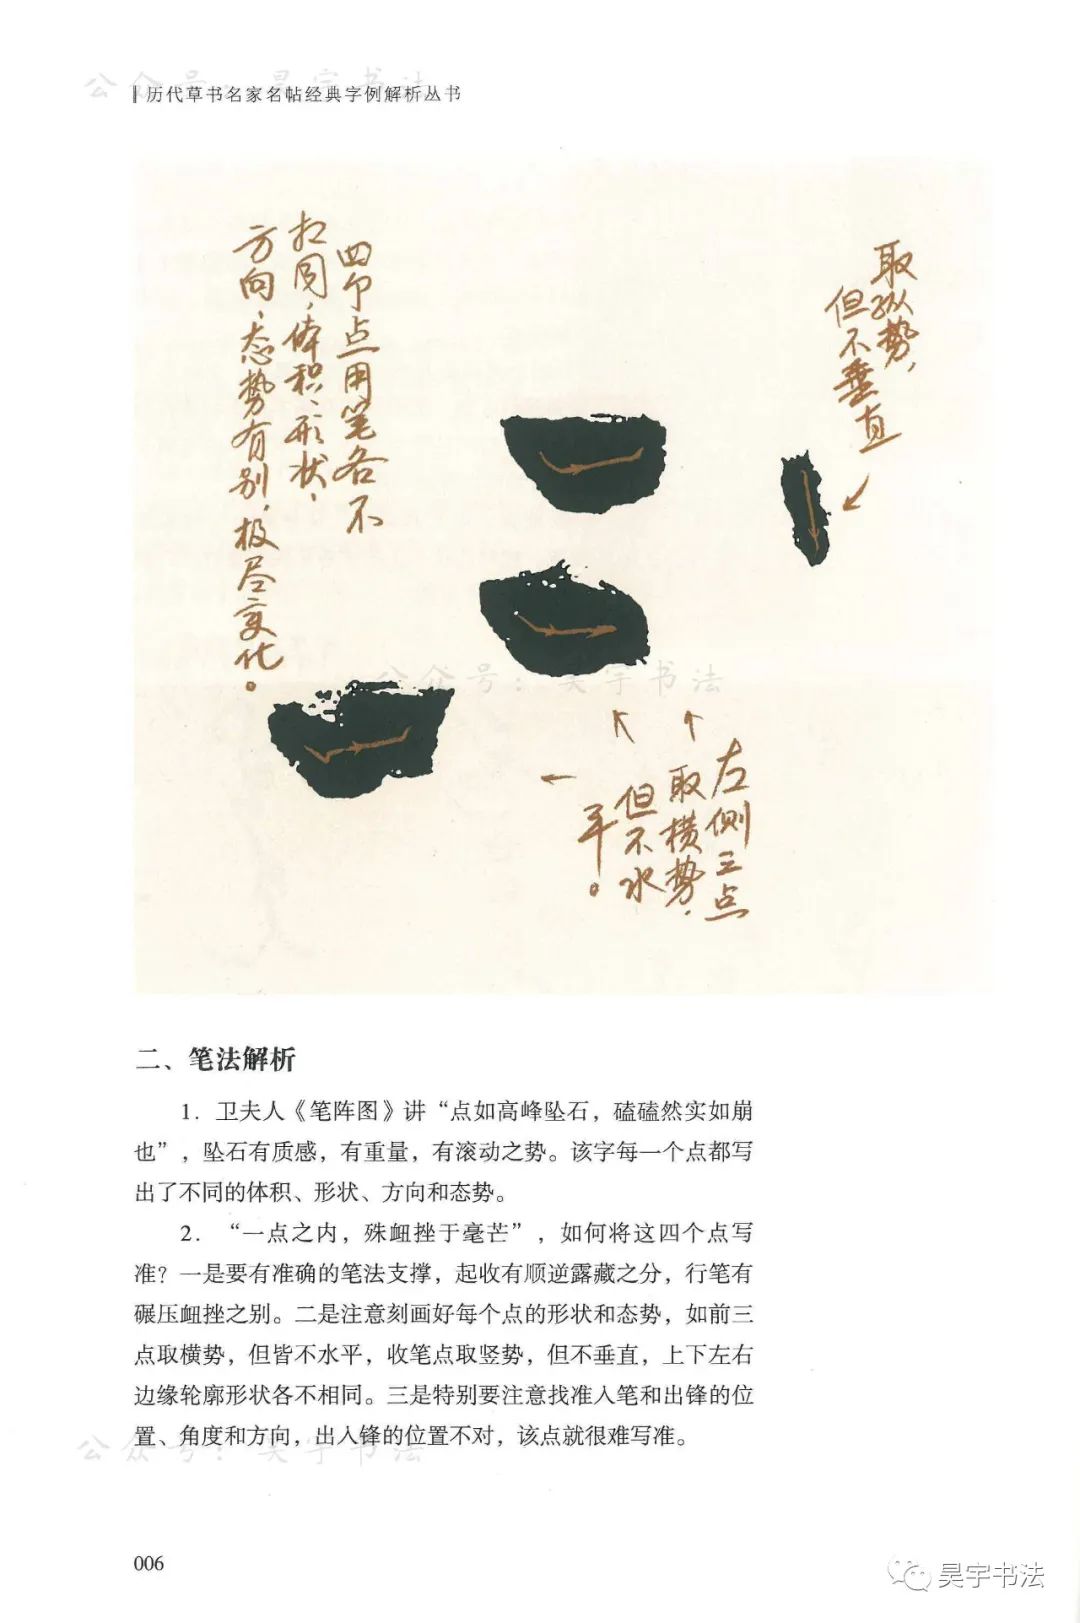 公众号：昊宇书法
历代草书名家名帖经典字例解析丛书
四个点用笔各不
相同，体积、形状、
方向、态势有别，极尽变化。
取纵势，
但不垂直
公众号：昊宇书法
左侧三点
取横势，
但不水
平。
二、笔法解析
1．卫夫人《笔阵图》讲“点如高峰坠石，磕磕然实如崩
也”，坠石有质感，有重量，有滚动之势。该字每一个点都写
出了不同的体积、形状、方向和态势。
2．“一点之内，殊衄挫于毫芒”，如何将这四个点写
准？一是要有准确的笔法支撑，起收有顺逆露藏之分，行笔有
碾压衄挫之别。二是注意刻画好每个点的形状和态势，如前三
点取横势，但皆不水平，收笔点取竖势，但不垂直，上下左右
边缘轮廓形状各不相同。三是特别要注意找准入笔和出锋的位
置、角度和方向，出入锋的位置不对，该点就很难写准。
公众号：昊宇书法
006
昊宇书法